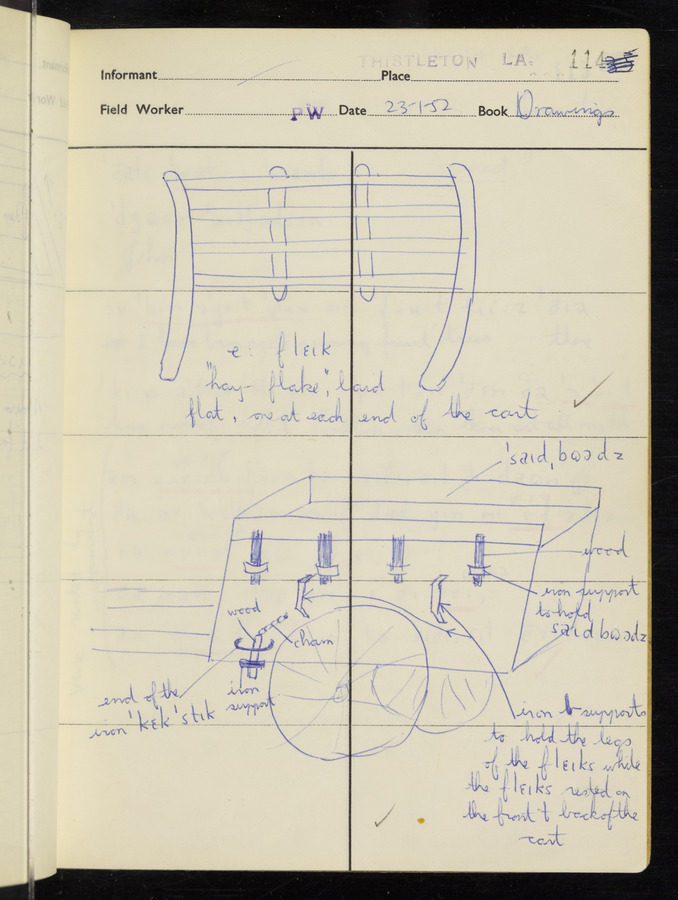 THISTLETON LA: 114
Informant Place
Field Worker PW Date 23-1-52 Book Drawings
e: flɛɪk
"hay-flake", laid
flat, one at each end of the cart
ˈsaɪdˌbɔədz
wood
iron support
to hold
saɪdbɔədz
wood
chain
end of the
iron ˈkɛkˈstɪk
iron
support
iron supports
to hold the legs
of the flɛɪks while
the flɛɪks rested on
the front + back of the
cart